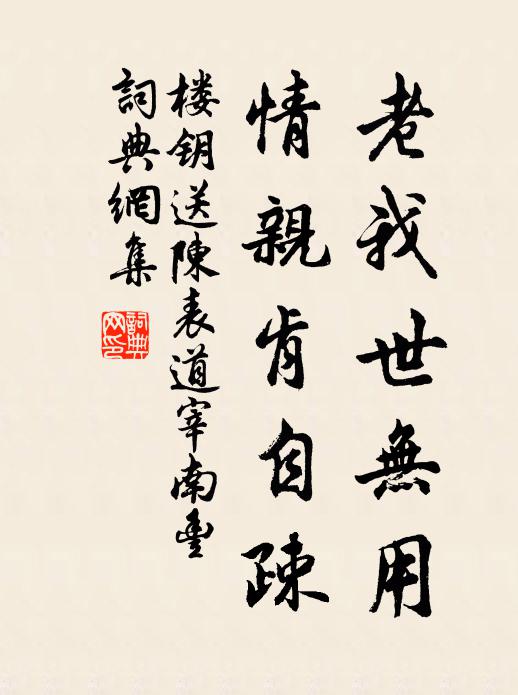 老我世無用
情親肯自疎
楼钥送陳表道宰南豐
詞典網集
詞典網印